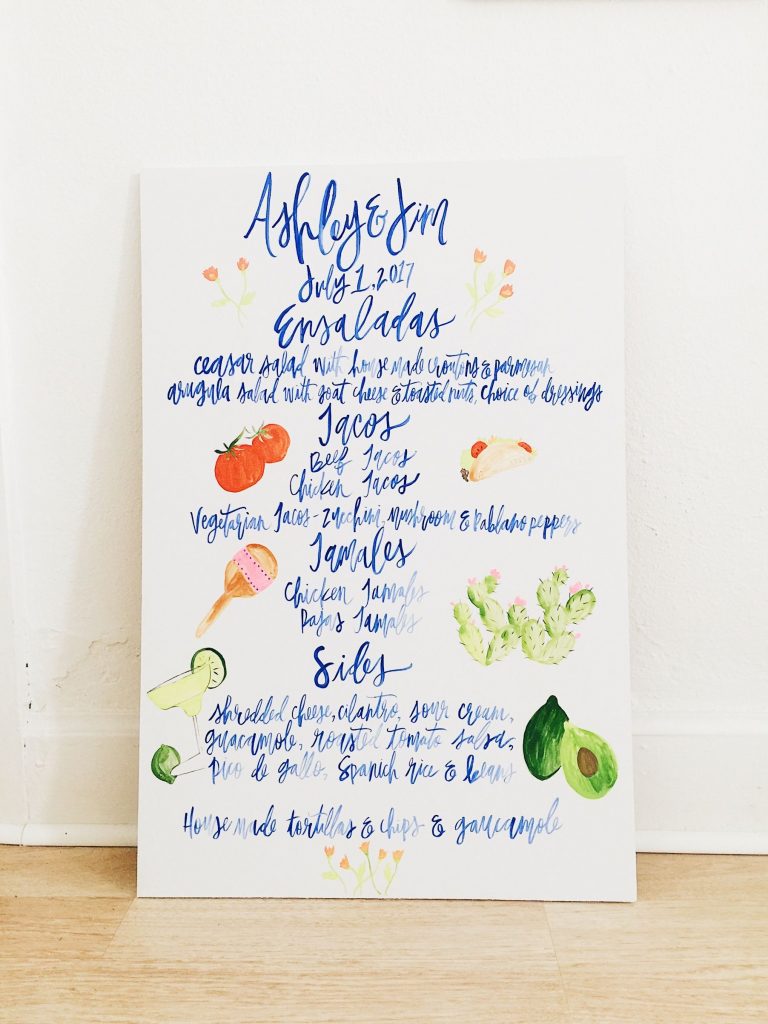 Ashley & Jim
July 1, 2017
Ensaladas
ceasar salad with house made croutons & parmesan
arugula salad with goat cheese & toasted nuts, choice of dressings
Tacos
Beef Tacos
Chicken Tacos
Vegetarian Tacos - zucchini, mushroom & Pablano peppers
Tamales
Chicken Tamales
Rajas Tamales
Sides
shredded cheese, cilantro, sour cream,
guacamole, roasted tomato salsa,
Pico de gallo, Spanich rice & beans
House made tortillas & chips & gaucamole